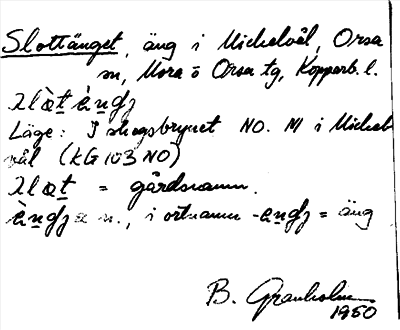 Slottänget, äng i Mickelvål, Orsa
sn, Mora o Orsa tg, Kopparb. l.
Läge: I skogsbrynet NO. M i Mickel
vål (KG 103 NO)
= gårdsnamn.
n., i ortnamn = äng
B. Granholm
1950